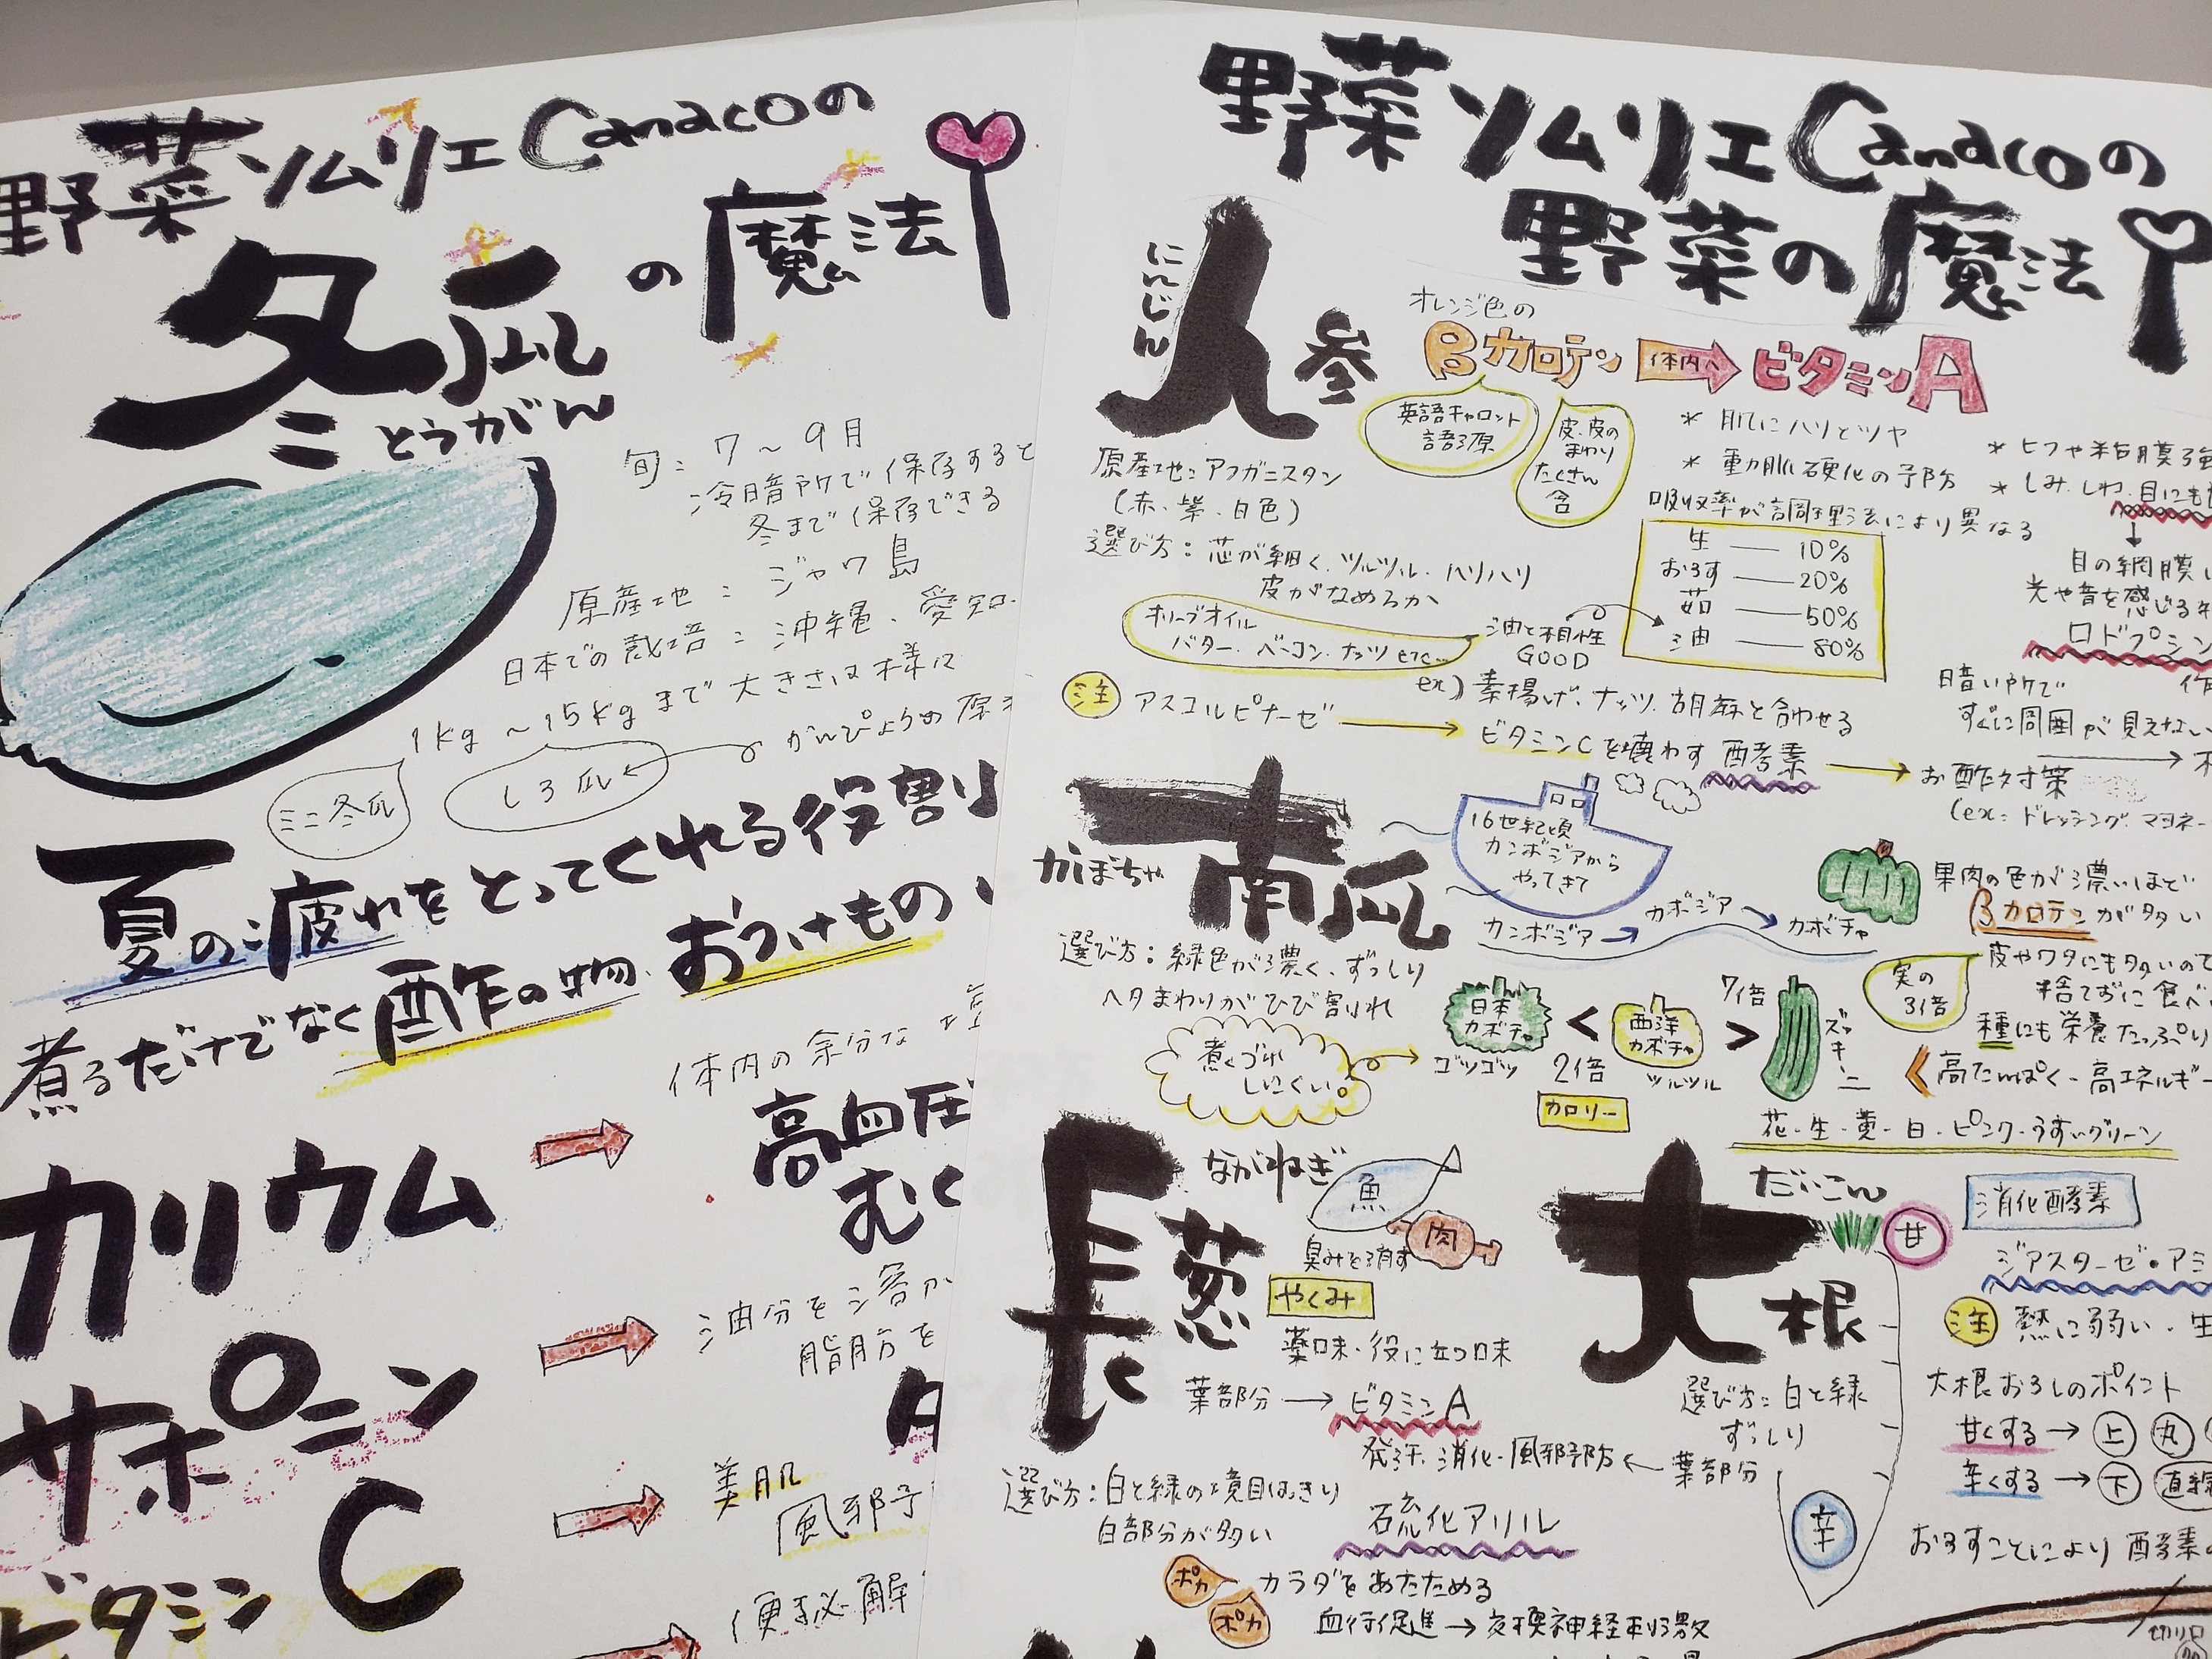 野菜ソムリエCanacoの
冬瓜の魔法
とうがん
旬：7～9月
冷暗所で保存すると
冬まで保存できる
原産地：ジャワ島
日本での栽培：沖縄、愛知
1kg～15kgまで大きさは様々
ミニ冬瓜
しろ瓜
かんぴょうの原
夏の疲れをとってくれる役割
煮るだけでなく酢の物、おつけもの
カリウム
体内の余分な
高血圧
むく
サポニン
油分を
脂肪を
ビタミンC
美肌
風邪予
便秘解
野菜ソムリエCanacoの
野菜の魔法
にんじん
人参
オレンジ色の
βカロテン 体内へ ビタミンA
英語キャロット
語源
皮、皮の
まわり
たくさん
含
＊ 肌にハリとツヤ
＊ 動脈硬化の予防
＊ ヒフや粘膜
＊ しみ、しわ、目にも
原産地：アフガニスタン
（赤、紫、白色）
選び方：芯が細く、ツルツル・ハリハリ
皮がなめらか
吸収率が調理法により異なる
生 10%
おろす 20%
茹 50%
油 80%
オリーブオイル
バター、ベーコン、ナッツ etc...
油と相性
GOOD
ex) 素揚げ、ナッツ、胡麻と合わせる
目の網膜
光や音を感じる
ロドプシン
暗い所で
すぐに周囲が見えない
注 アスコルビナーゼ
ビタミンCを壊わす酵素
お酢対策
(ex: ドレッシング、マヨネー
かぼちゃ
南瓜
16世紀頃
カンボジアから
やってきて
カンボジア
カボジア
カボチャ
果肉の色が濃いほど
βカロテンが多い
選び方：緑色が濃く、ずっしり
ヘタまわりがひび割れ
煮くづれ
しにくい。
日本
カボチャ
ゴツゴツ
<
2倍
カロリー
西洋
カボチャ
ツルツル
>
7倍
ズッキーニ
実の
3倍
皮やワタにも多いので
捨てずに食べ
種にも栄養たっぷり
高たんぱく・高エネルギー
花・生・黄・白・ピンク・うすいグリーン
ながねぎ
長葱
魚
肉
臭みを消す
やくみ
薬味・役に立つ味
葉部分 ビタミンA
発汗、消化・風邪予防 葉部分
選び方：白と緑の境目はっきり
白部分が多い
硫化アリル
ポカ
ポカ
カラダをあたためる
血行促進→交換神経刺激
だいこん
大根
甘
辛
選び方：白と緑
ずっしり
消化酵素
ジアスターゼ・アミ
注 熱に弱い・生
大根おろしのポイント
甘くする→上 丸
辛くする→下 直線
おろすことにより酵素
切り口